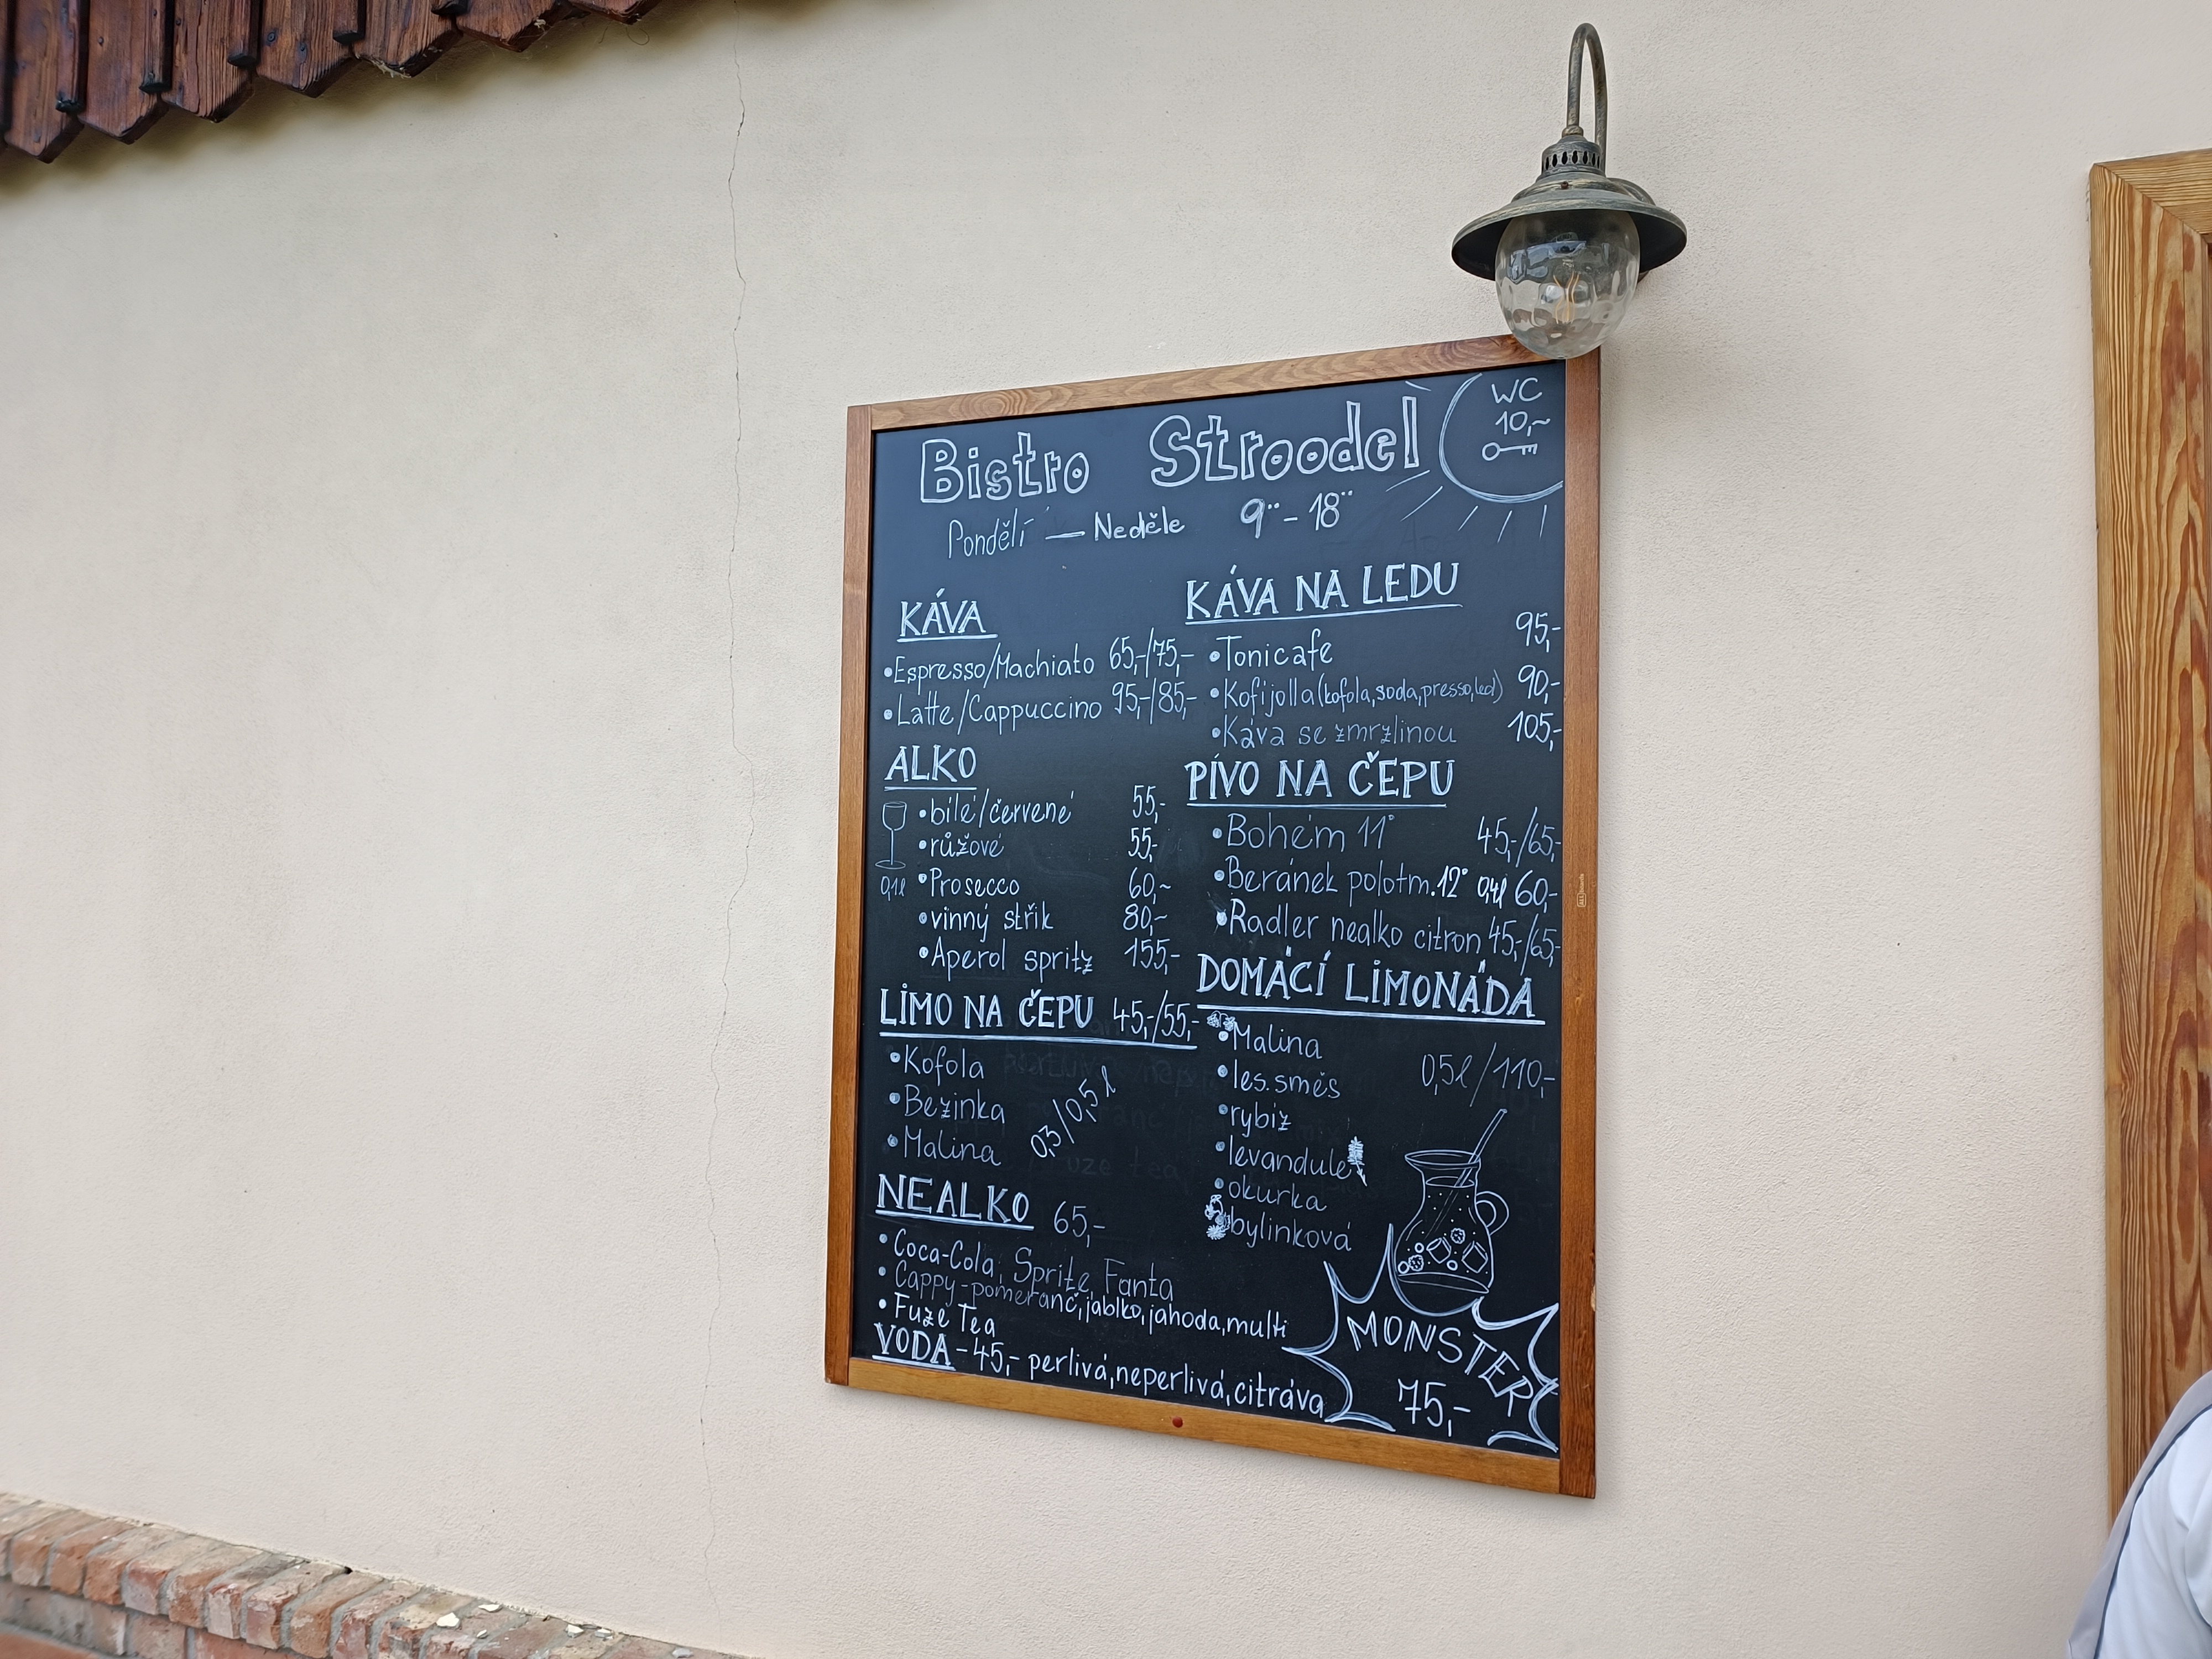 Bistro Stroodel
WC
10,-
Pondělí — Neděle 9⁰⁰ - 18⁰⁰
KÁVA
• Espresso/Machiato 65,-/75,-
• Latte/Cappuccino 95,-/85,-
ALKO
• bílé/červené 55,-
• růžové 55,-
0,1l
• Prosecco 60,-
• vinný střik 80,-
• Aperol spritz 155,-
LIMO NA ČEPU 45,-/55,-
• Kofola
• Bezinka
• Malina
0,3/0,5 l
NEALKO 65,-
• Coca-Cola, Sprite, Fanta
• Cappy-pomeranč, jablko, jahoda, multi
• Fuze Tea
VODA - 45,- perlivá, neperlivá, citráva
KÁVA NA LEDU
• Tonicafe 95,-
• Kofijolla (kofola, soda, presso, led) 90,-
• Káva se zmrzlinou 105,-
PÍVO NA ČEPU
• Bohém 11° 45,-/65,-
• Beránek polotm. 12° 0,4l 60,-
• Radler nealko citron 45,-/65,-
DOMÁCÍ LIMONÁDA
• Malina
• les. směs 0,5l/110,-
• rybiz
• levandule
• okurka
• bylinková
MONSTER
75,-